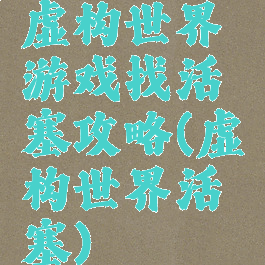 虚构世界
游戏找活
塞攻略(虚
构世界活
塞)